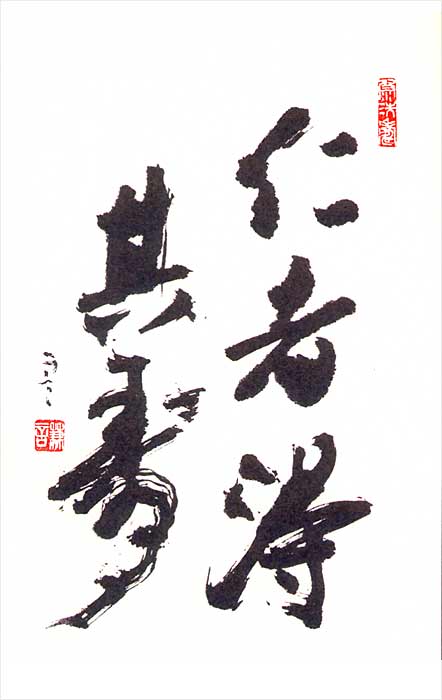 仁者得
其寿